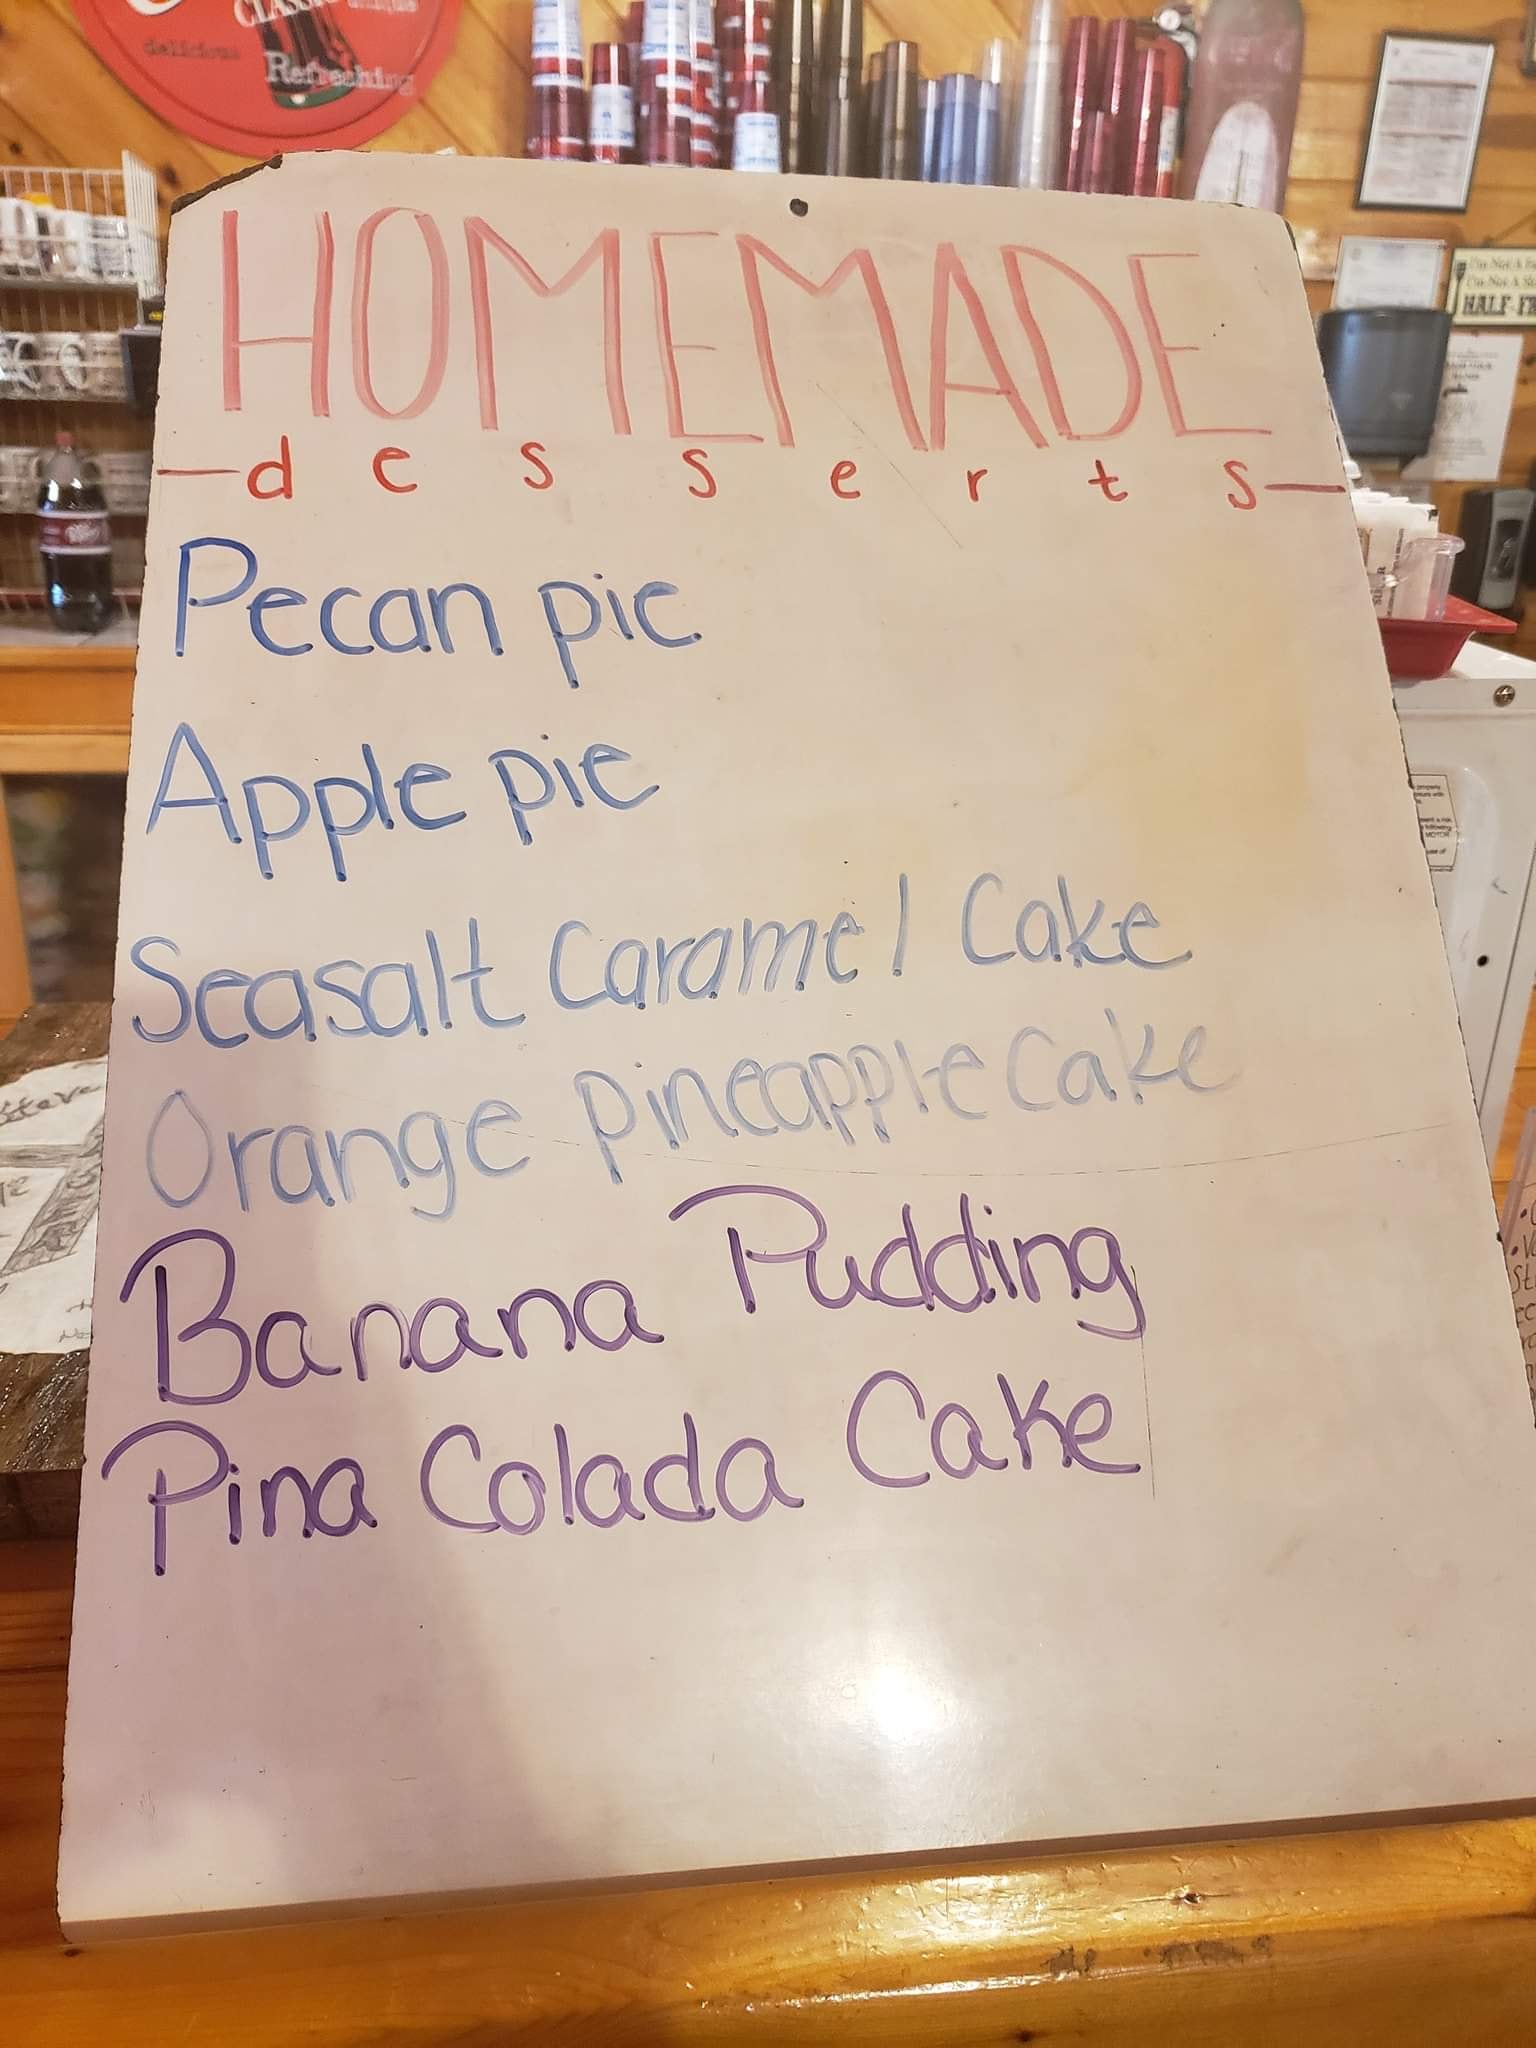 CLASSIC
delicious
Refreshing
I'm Not A
I'm Not A
HALF-
HOMEMADE
—desserts—
Pecan pie
Apple pie
Seasalt Caramel Cake
Orange pineapple Cake
Banana Pudding
Pina Colada Cake
Steve